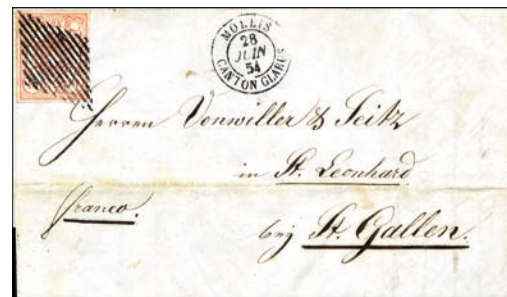 MOLLIS
28
JUIN
54
CANTON GLARUS
Herren Vonwiller & Seitz
in St. Leonhard
franco.
bey St. Gallen.